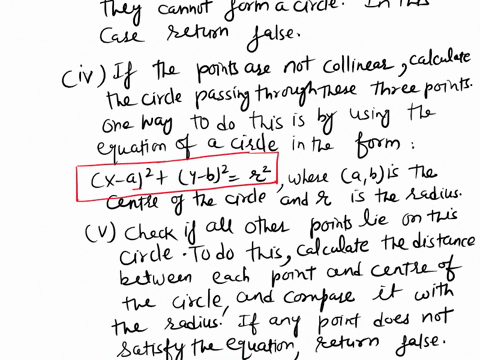 they cannot form a circle. In this
case return false.
(iv) If the points are not collinear, calculate
the circle passing through these three points.
One way to do this is by using the
equation of a circle in the form:
(x-a)² + (y-b)² = r², where (a,b) is the
centre of the circle and r is the radius.
(v) Check if all other points lie on this
circle. To do this, calculate the distance
between each point and centre of
the circle, and compare it with
the radius. If any point does not
satisfy the equation, return false.